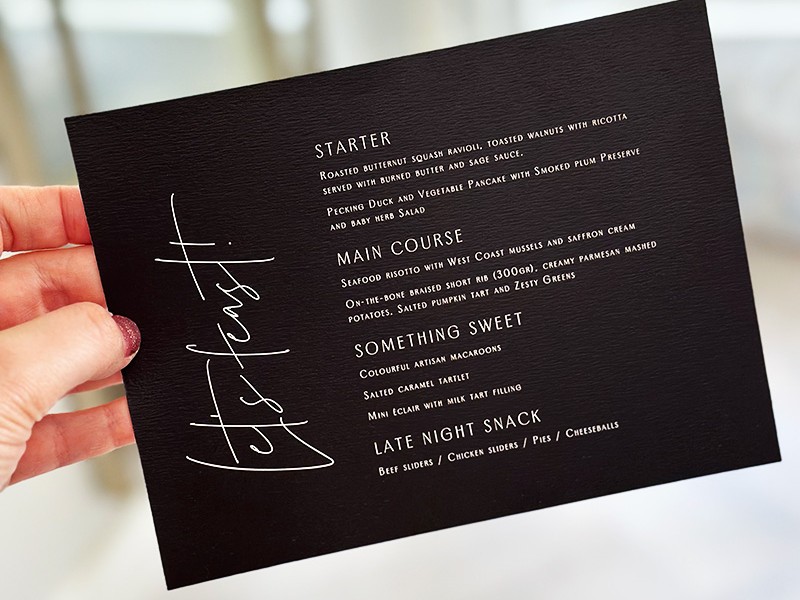 Let's feast!
STARTER
Roasted butternut squash ravioli, toasted walnuts with ricotta
served with burned butter and sage sauce.
Pecking Duck and Vegetable Pancake with Smoked plum Preserve
and baby herb Salad
MAIN COURSE
Seafood risotto with West Coast mussels and saffron cream
On-the-bone braised short rib (300gr), creamy parmesan mashed
potatoes, Salted pumpkin tart and Zesty Greens
SOMETHING SWEET
Colourful artisan macaroons
Salted caramel tartlet
Mini eclair with milk tart filling
LATE NIGHT SNACK
Beef sliders / Chicken sliders / Pies / Cheeseballs